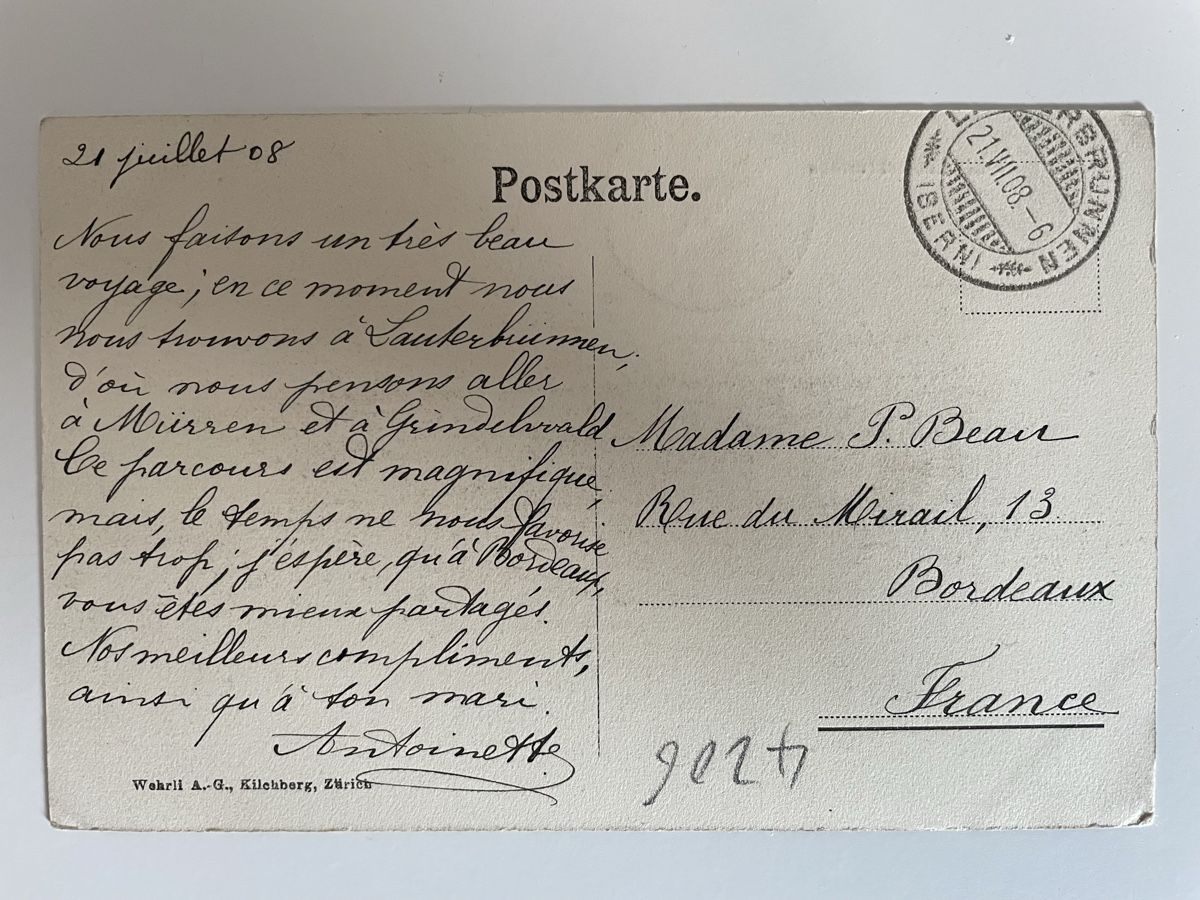 21 juillet 08
Postkarte.
Nous faisons un très beau
voyage; en ce moment nous
nous trouvons à Lauterbrunnen,
d'où nous pensons aller
à Mürren et à Grindelwald
Ce parcours est magnifique,
mais, le temps ne nous favorise
pas trop; j'espère, qu'à Bordeaux,
vous êtes mieux partagés.
Nos meilleurs compliments,
ainsi qu'à ton mari.
Antoinette.
Wehrli A.-G., Kilchberg, Zürich
21.VII.08.-6
(BERN)
Madame P. Beau
Rue du Mirail, 13
Bordeaux
France
4206